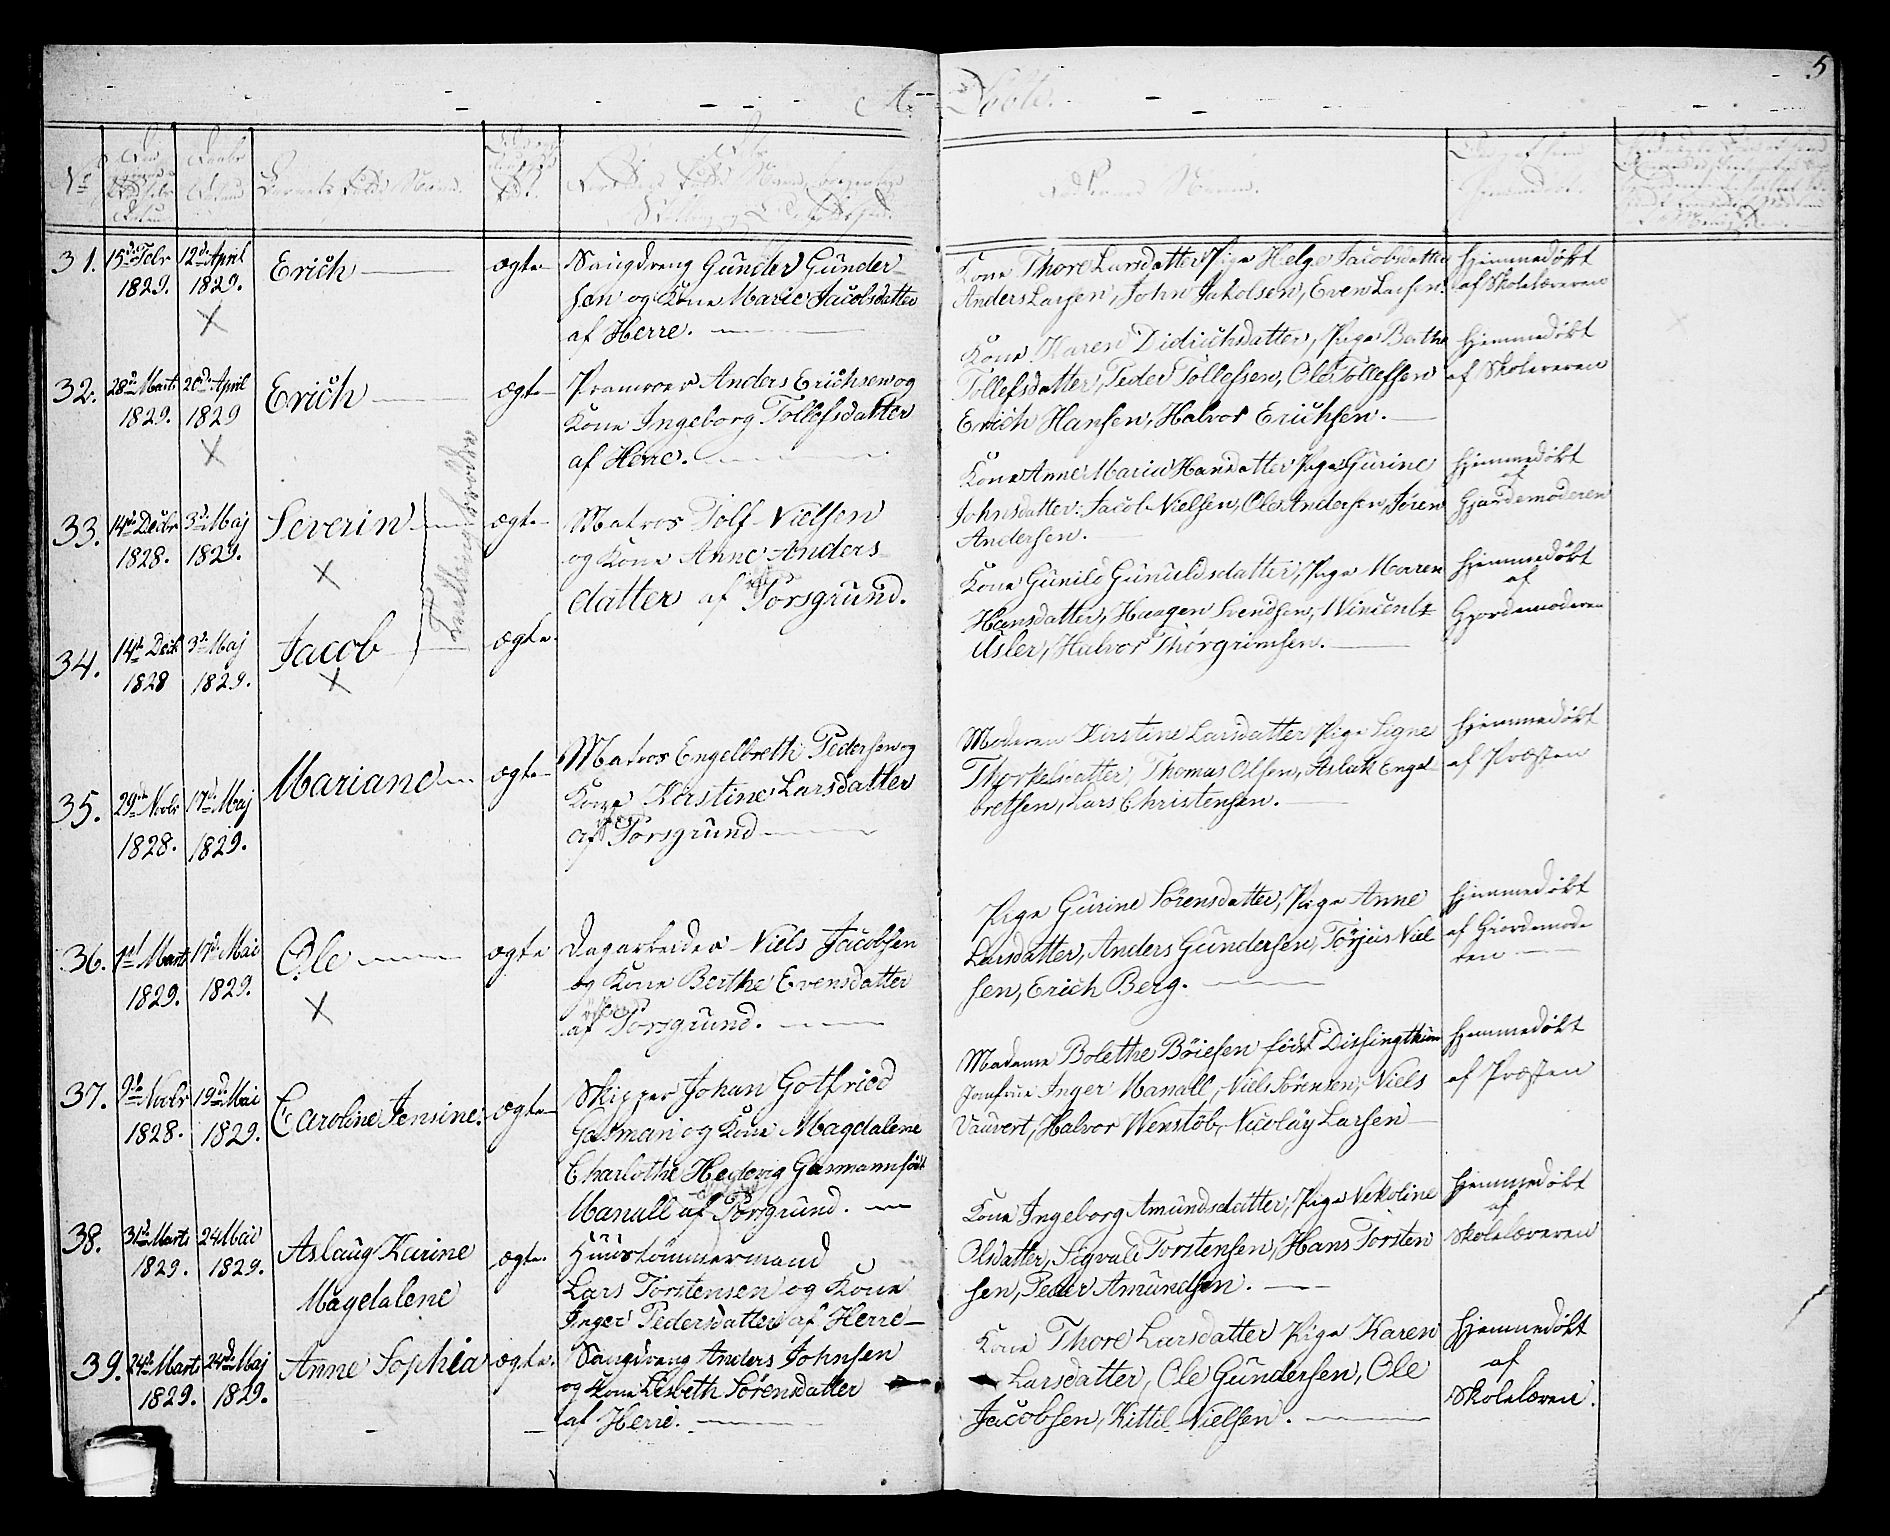 5
Døbte.
No
Barnets fulde Navn.
31. 15de Febr 1829. 12te April 1829. Erich ægte
Saugdreng Gunder Gunder-
sen og Kone Marie Jacobsdatter
af Herre.
Kone Thore Larsdatter, Pige Helge Jacobsdatter
Anders Larsen, John Jakobsen, Even Larsen.
Hjemmedøbt
af Skolelæreren
32. 28de Marts 1829. 20de April 1829 Erich ægte
Pramroer Anders Erichsen og
Kone Ingeborg Tollefsdatter
af Herre.
Kone Karen Didrichsdatter, Pige Berthe
Tollefsdatter, Peder Tollefsen, Ole Tollefsen
Erich Hansen, Halvor Erichsen.
Hjemmedøbt
af Skolereren
33. 14de Decbr 1828. 3de Maj 1829. Severin ægte
Matros Tolf Nielsen
og Kone Anne Anders-
datter af Porsgrund.
Kone Anne Maria Hansdatter Pige Gurine
Johnsdatter: Jacob Nielsen, Ole Andersen, Sören
Andersen.
Hjemmedøbt
af
Gjordemoderen
34. 14de Decbr 1828 3de Maj 1829. Jacob ægte.
Tvillingbrødre
Kone Gunild Gunuldsdatter, Pige Maren
Hansdatter, Haagen Svendsen, Wincentz
Usler, Halvor Thorgrimsen.
Hjemmedøbt
af
Gjordemoderen
35. 29de Novbr 1828. 17de Maj 1829. Mariane ægte
Matros Engelbreth Pedersen og
Kone Kirstine Larsdatter
af Porsgrund
Moderen Kirstine Larsdatter Pige Signe
Thorkelsdatter, Thomas Olsen, Aslak Engel-
bretsen, Lars Christensen.
Hjemmedøbt
af Præsten
36. 1st Marts 1829. 17de Mai 1829. Ole ægte
Dagarbeider Niels Jacobsen
og Kone Berthe Evensdatter
af Porsgrund.
Pige Gurine Sørensdatter, Pige Anne
Larsdatter, Anders Gundersen, Torjus Niel
sen, Erich Berg.
Hjemmedøbt
af Giordemode
ren
37. 9de Novbr 1828. 19de Mai 1829. Caroline Jensine. ægte
Skipper Johan Gotfried
Gasman og Kone Magdalene
Charlothe Hedevig Gasmann født
Manall af Porsgrund.
Madame Bolethe Böiesen født Dissingthun
Jomfrue Inger Manall, Niels Sörensen, Niels
Vauvert, Halvor Wenstöb, Nicolay Larsen
Hjemmedøbt
af Præsten
38. 31te Marts 1829. 24 Mai 1829. Aslaug Karine
Magdalene ægte.
Huustømmermand
Lars Torstensen og Kone
Inger Pedersdatter af Herre
Kone Ingeborg Amundsdatter, Pige Nekoline
Olsdatter, Sigvald Torstensen, Hans Torsten
sen, Peder Amundsen.
Hjemmedøbt
af
Skolelæreren
39. 24de Marts 1829. 24de Maj 1829. Anne Sophia ægte.
Saugdreng Anders Johnsen
og Kone Lisbeth Sörensdatter
af Herre.
Kone Thore Larsdatter Pige Karen
Larsdatter, Ole Gundersen, Ole
Jacobsen, Kittil Nielsen.
Hjemmedøbt
af
Skolelæren.